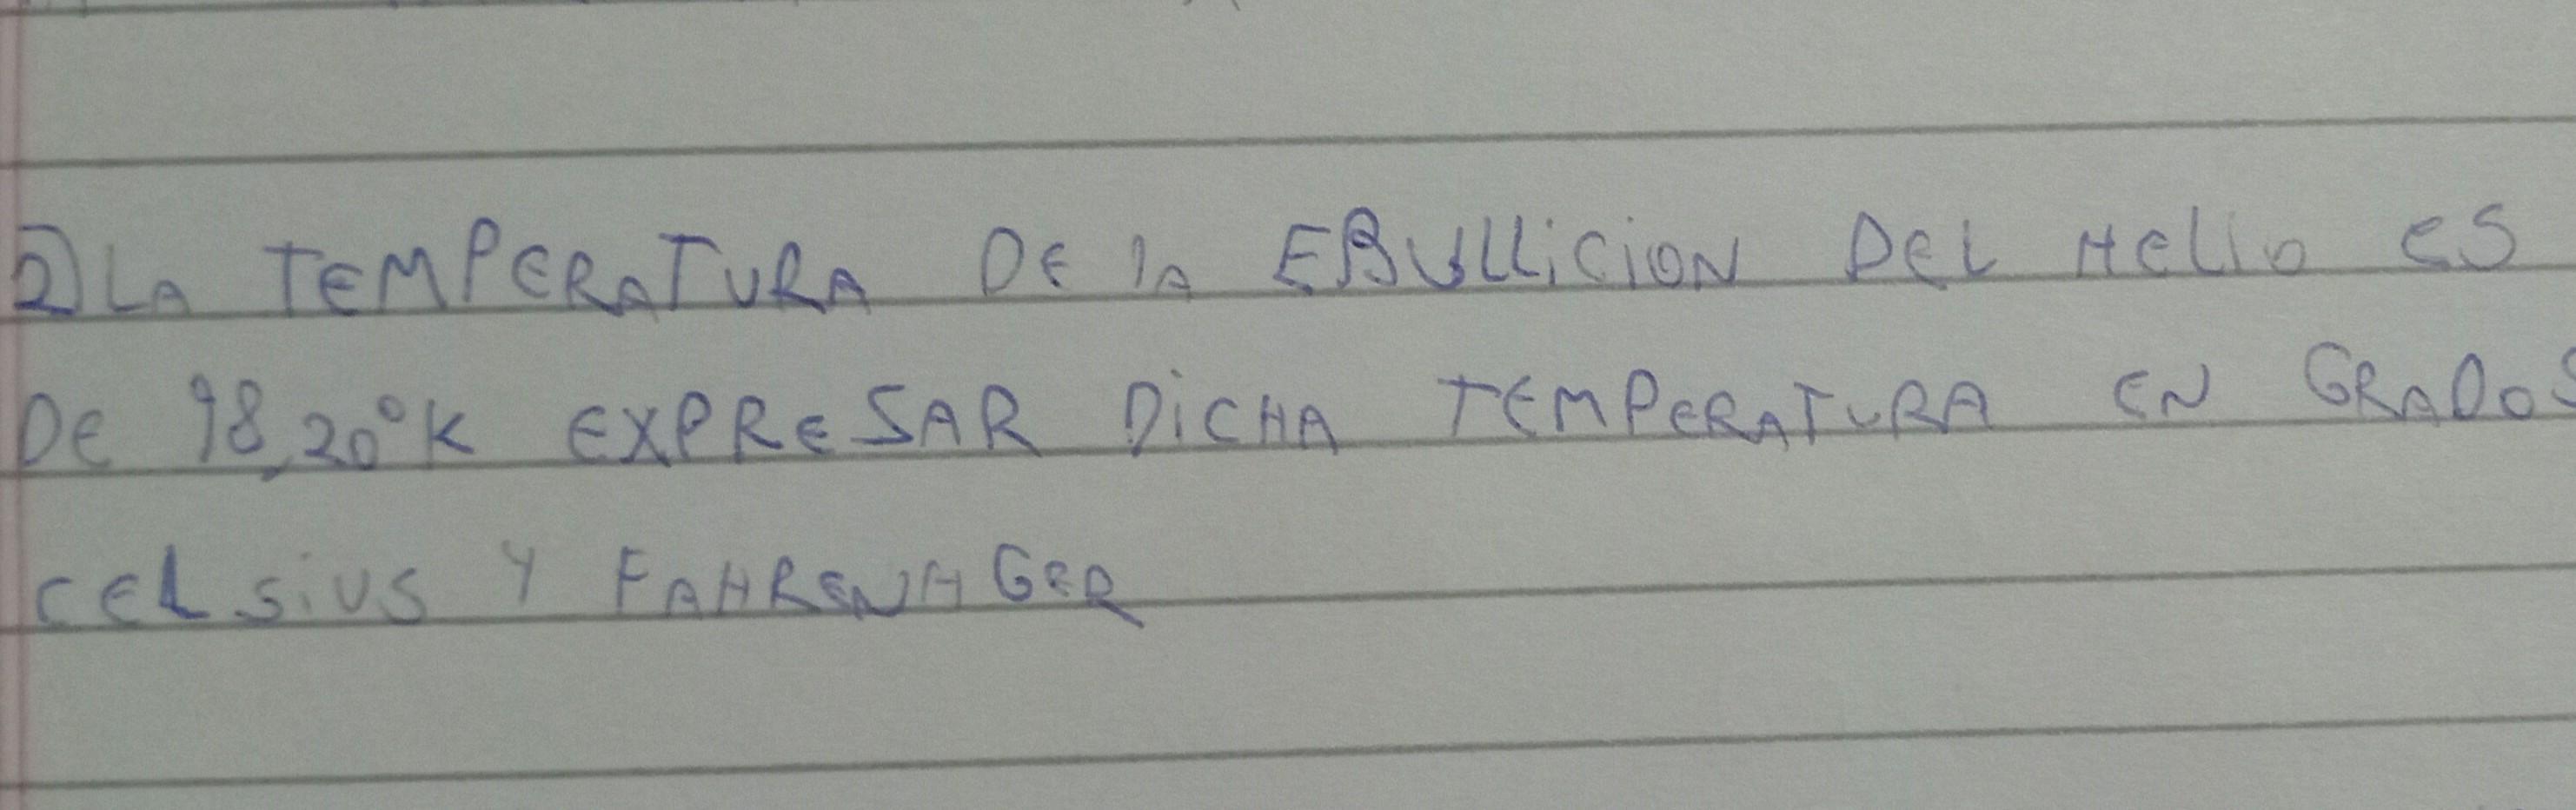 2) LA TEMPERATURA DE LA EBULLICION DEL HELIO ES
DE 98,20°K EXPRESAR DICHA TEMPERATURA EN GRADOS
CELSIUS Y FAHRENHGER